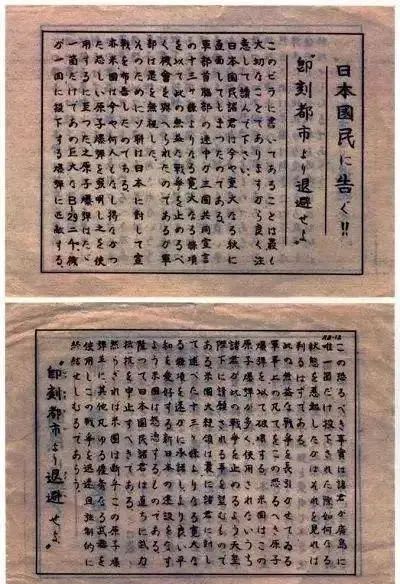 日本國民に告ぐ!!
"即刻都市より退避せよ"
このビラに書いてあることは最も
大切なことでありますから良く注
意して讀んで下さい。
日本國民諸君は今や重大なる秋に
直面してしまつたのである。
軍部首脳部の連中が三國共同宣言
の十三ヶ條よりなる寛大なる條項
を以て此の無益な戰爭を止めるべ
く機會を與へられたのであるが軍
部は是を無視した。
そのためにソ聯は日本に對して宣
戰を布告したのである。
亦米國は今や何人もなし得なかつ
た恐しい原子爆彈を發明し之を使
用するに至つた。之原子爆彈はたゞ
一箇だけであの巨大なB29二千機
が一回に投下する爆彈に匹敵する
この恐るべき事實は諸君が廣島に
唯一箇だけ投下された際如何なる
状態を惹起したかはそれを見れば
判るはずである。
此の無益な戰爭を長引かせてゐる
軍事上の凡てをこの恐るべき原子
爆彈を以て破壞する。米國はこの
原子爆彈が多く使用されないうち
諸君が此の戰爭を止めるよう天皇
陛下に請願される事を望むもので
ある。米國大統領は曩に諸君に對し
て述べた十三ヶ條よりなる寛大な
る條項を速かに承諾しより良い平
和を愛好する新日本の建設をなす
よう米國は慫慂するものである。
隨つて日本國民諸君は直ちに武力
抵抗を中止すべきである。
然らざれば米國は斷乎この原子爆
彈並に其他凡ゆる優秀なる武器を
使用しこの戰爭を迅速且強制的に
終結せしむるであらう。
"即刻都市より退避せよ"